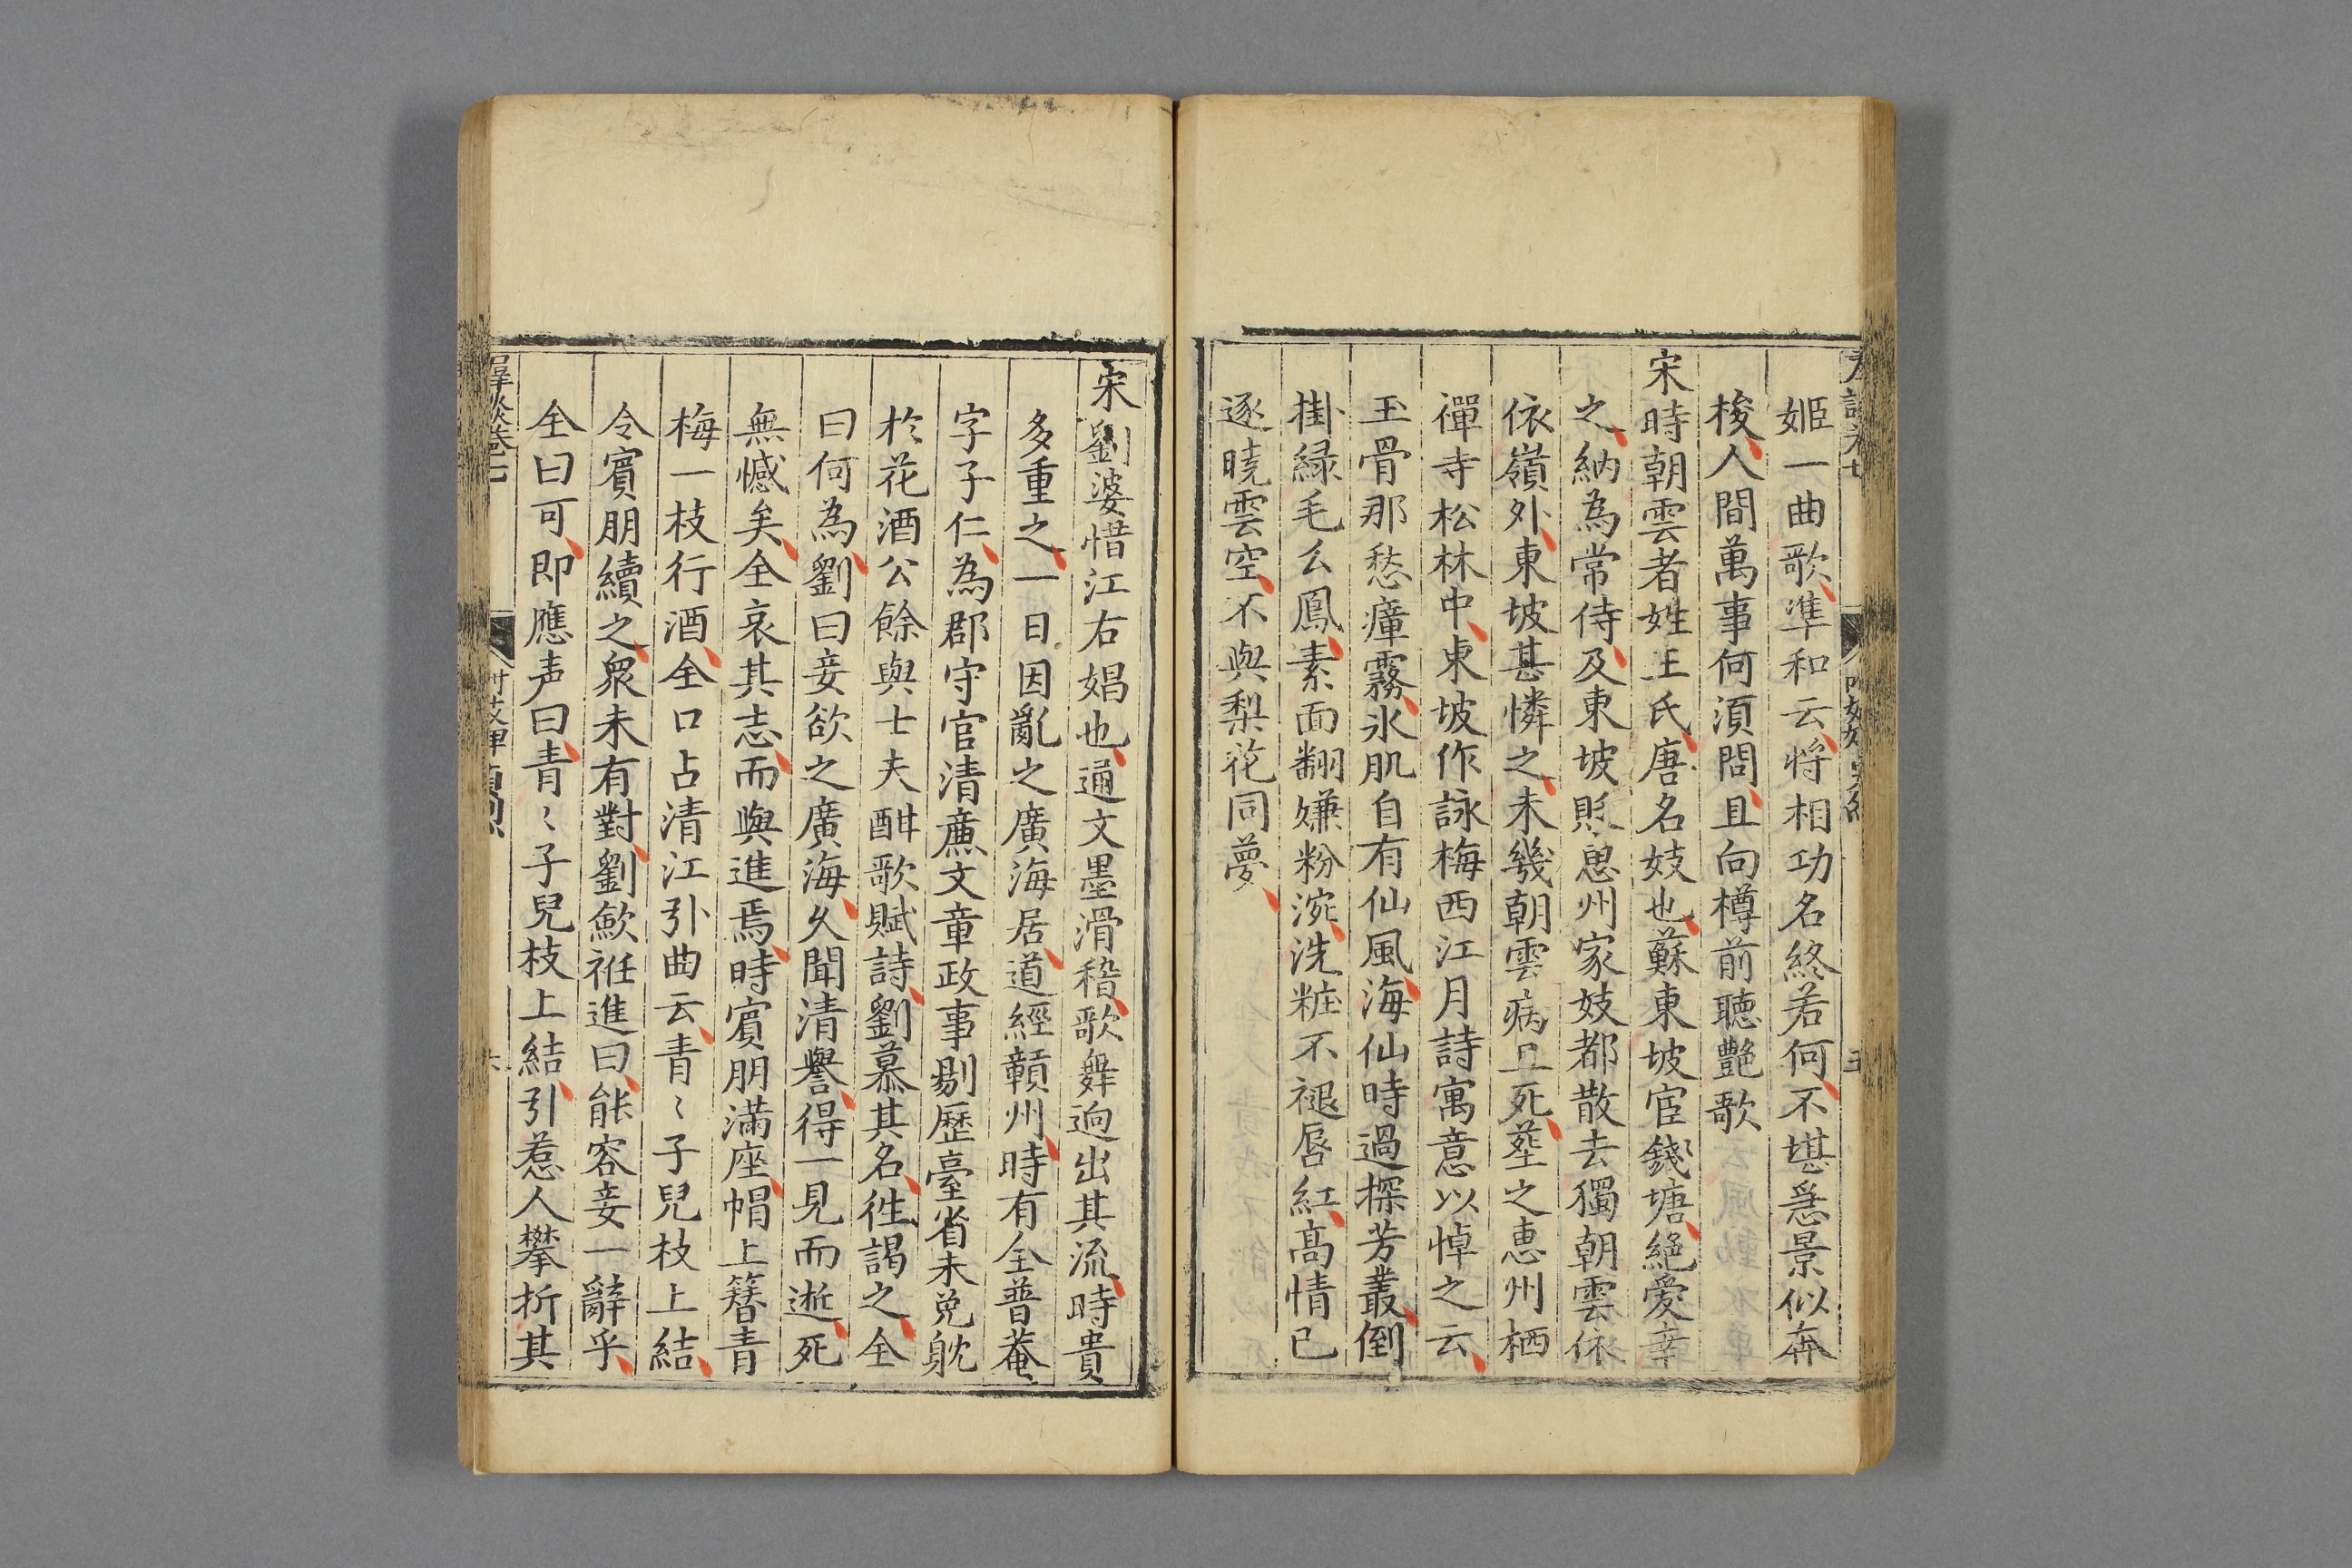 姬一曲歌準和云將相功名終若何不堪急景似奔
梭人間萬事何須問且向樽前聽艷歌
宋時朝雲者姓王氏唐名妓也蘇東坡宦錢塘絕愛幸
之納為常侍及東坡貶惠州家妓都散去獨朝雲依
依嶺外東坡甚憐之未幾朝雲病且死塟之惠州栖
禪寺松林中東坡作詠梅西江月詩寓意以悼之云
玉骨那愁瘴霧氷肌自有仙風海仙時過探芳叢倒
掛緑毛么鳳素面翻嫌粉涴洗粧不褪唇紅髙情已
逐曉雲空不與梨花同夢
宋劉婆惜江右娼也通文墨滑稽歌舞逈出其流時貴
多重之一日因亂之廣海居道經贑州時有全普菴
字子仁為郡守官清亷文章政事剔歷臺省未免躭
於花酒公餘與士夫酣歌賦詩劉慕其名徃謁之全
曰何為劉曰妾欲之廣海久聞清譽得一見而逝死
無憾矣全哀其志而與進焉時賔朋滿座帽上簪青
梅一枝行酒全口占清江引曲云青〻子兒枝上結
令賔朋續之衆未有對劉歛袵進曰能容妾一辭乎
全曰可即應声曰青〻子兒枝上結引惹人攀折其